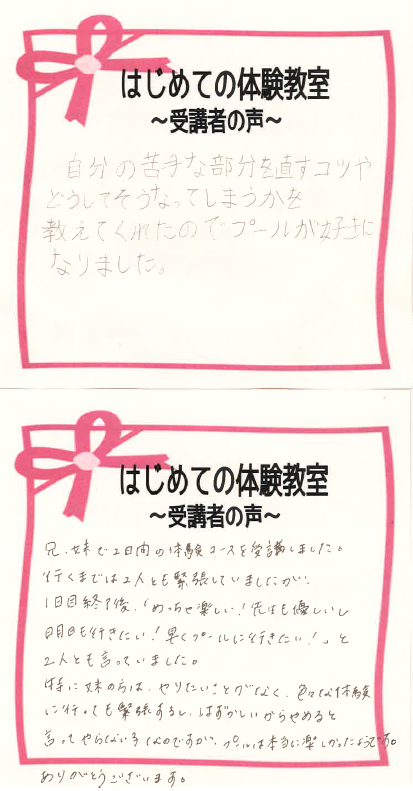 はじめての体験教室
～受講者の声～
自分の苦手な部分を直すコツや
どうしてそうなってしまうかを
教えてくれたのでプールが好きに
なりました。
はじめての体験教室
～受講者の声～
兄、妹で2日間の体験コースを受講しました。
行くまでは2人とも緊張していましたが、
1日目終了後、「めっちゃ楽しい!先生も優しいし
明日も行きたい!早くプールに行きたい!」と
2人とも言っていました。
特に妹の方は、やりたいことがなく、色々な体験
に行っても緊張するし、はずかしいからやめると
言ってやらない子なのですが、プールは本当に楽しかったようです。
ありがとうございます。